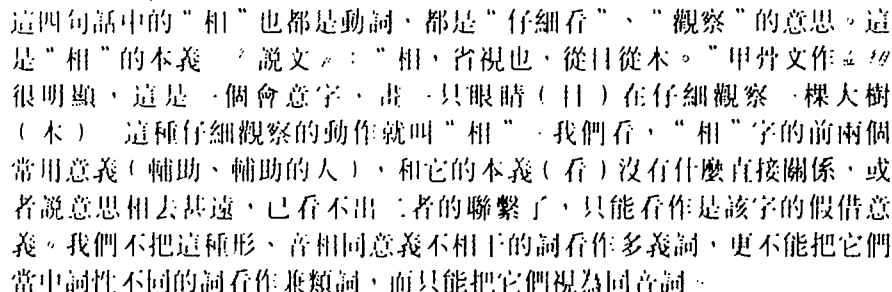 這四句話中的“相”也都是動詞,都是“仔細看”、“觀察”的意思。這
是“相”的本義 《說文》:“相,省視也,從目從木。”甲骨文作
很明顯,這是一個會意字,畫一只眼睛(目)在仔細觀察一棵大樹
(木) 這種仔細觀察的動作就叫“相” 我們看,“相”字的前兩個
常用意義(輔助、輔助的人),和它的本義(看)沒有什麼直接關係,或
者說意思相去甚遠,已看不出二者的聯繫了,只能看作是該字的假借意
義。我們不把這種形、音相同意義不相干的詞看作多義詞,更不能把它們
當中詞性不同的詞看作兼類詞,而只能把它們視為同音詞。